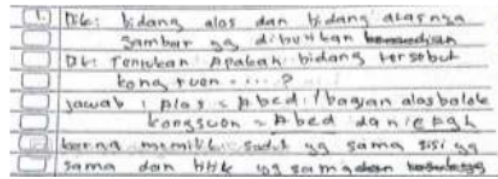 1. Dik: bidang alas dan bidang atasnya
gambar yg dibutkan
Dit: Tentukan Apakah bidang tersebut
kongruen ....?
Jawab: Alas = Abcd / bagian alas balok
kongruen = Abcd dan efgh
karna memiliki sudut yg sama sisi yg
sama dan yg sama